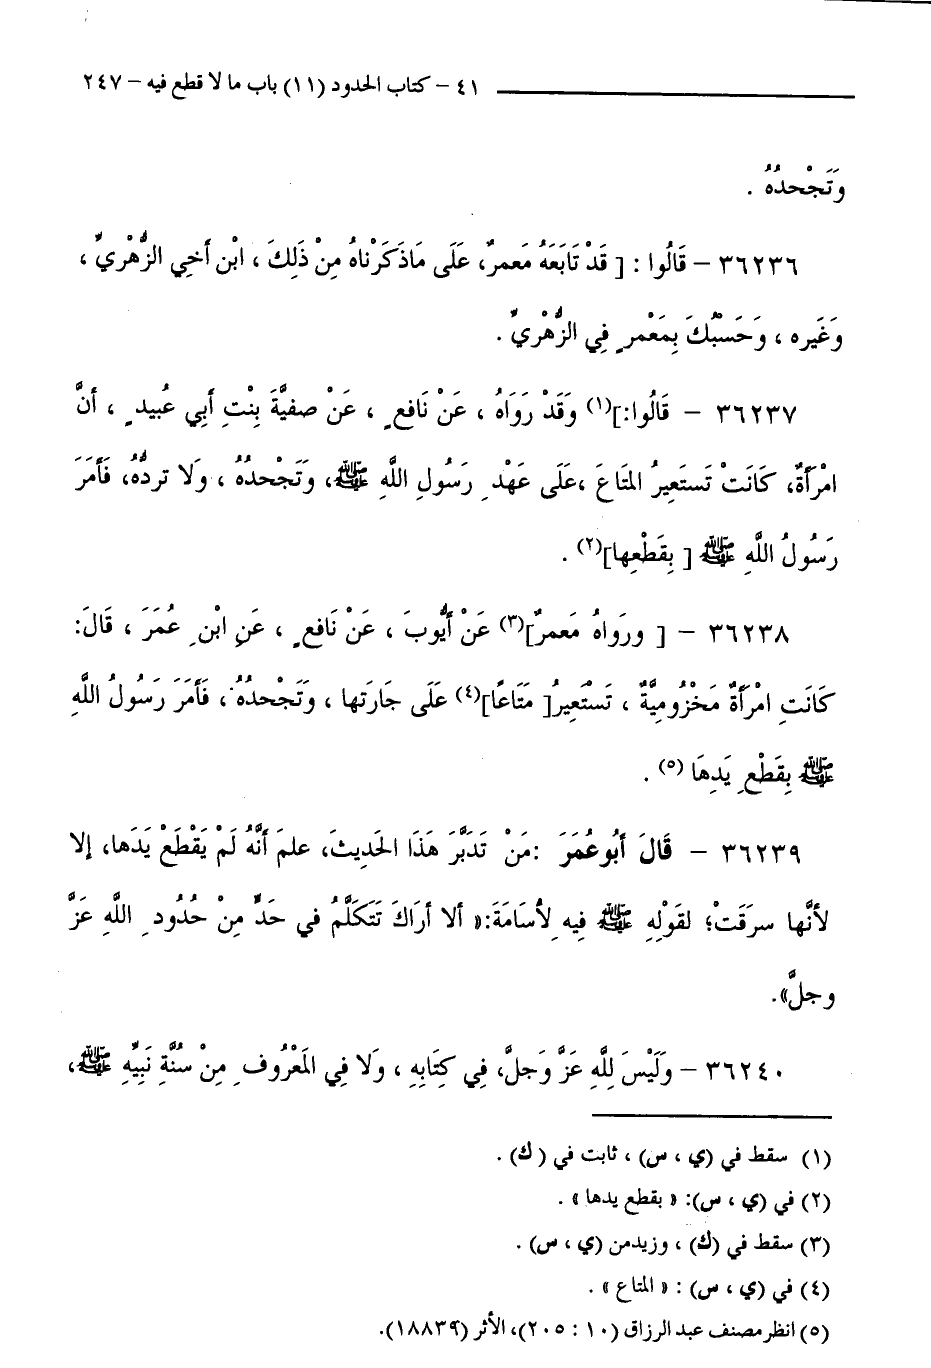 ٤١ – كتاب الحدود (١١) باب ما لا قطع فيه – ٢٤٧
وَتَجْحدُهُ .
٣٦٢٣٦ – قَالُوا : [ قَدْ تَابَعَهُ مَعمرٌ، عَلَى مَاذَكَرْناهُ مِنْ ذَلِكَ ، ابْن أَخِي الزُّهْرِيِّ ،
وَغَيره ، وَحَسْبُكَ بِمَعْمرٍ فِي الزُّهْرِيِّ .
٣٦٢٣٧ – قَالُوا:](١) وَقَدْ رَوَاهُ ، عَنْ نَافعٍ ، عَنْ صفيَّةَ بِنْتِ أَبِي عُبيدٍ ، أنَّ
امْرَأَةٌ، كَانَتْ تَستَعِيرُ المتَاعَ ،عَلَى عَهْدِ رَسُولِ اللَّهِ ﷺ، وَتَجْحدُهُ ، وَلا تردُّهُ، فَأَمَرَ
رَسُولُ اللَّهِ ﷺ [ بِقَطْعِها](٢) .
٣٦٢٣٨ – [ ورَواهُ مَعمرٌ](٣) عَنْ أَيُّوبَ ، عَنْ نَافعٍ ، عَنِ ابْنِ عُمَرَ ، قَالَ:
كَانَتِ امْرَأَةٌ مَخْزُومِيَّةٌ ، تَسْتَعِيرُ[ مَتَاعًا](٤) عَلَى جَارَتها ، وَتَجْحدُهُ ، فَأَمَرَ رَسُولُ اللَّهِ
ﷺ بِقَطْعِ يَدِهَا (٥) .
٣٦٢٣٩ – قَالَ أَبُوعُمَرَ :مَنْ تَدَبَّرَ هَذَا الحَدِيثَ، علمَ أَنَّهُ لَمْ يَقْطَعْ يَدَها، إلا
لأنَّها سرَقَتْ؛ لقَوْلِهِ ﷺ فِيه لِأُسَامَةَ:« ألا أرَاكَ تَتَكَلَّمُ في حَدٍّ مِنْ حُدُودِ اللَّهِ عَزَّ
وجلَّ».
٣٦٢٤٠ – وَلَيْسَ لِلَّهِ عَزَّ وَجلَّ، فِي كِتَابِهِ ، وَلا فِي المَعْرُوفِ مِنْ سُنَّةِ نَبِيِّهِ ﷺ،
(١) سقط في (ي ، س) ، ثابت في ( ك) .
(٢) في (ي ، س): « بقطع يدها » .
(٣) سقط في (ك) ، وزيدمن (ي ، س) .
(٤) في (ي ، س) : « المتاع » .
(٥) انظر مصنف عبد الرزاق (١٠ : ٢٠٥)، الأثر (١٨٨٣٩).